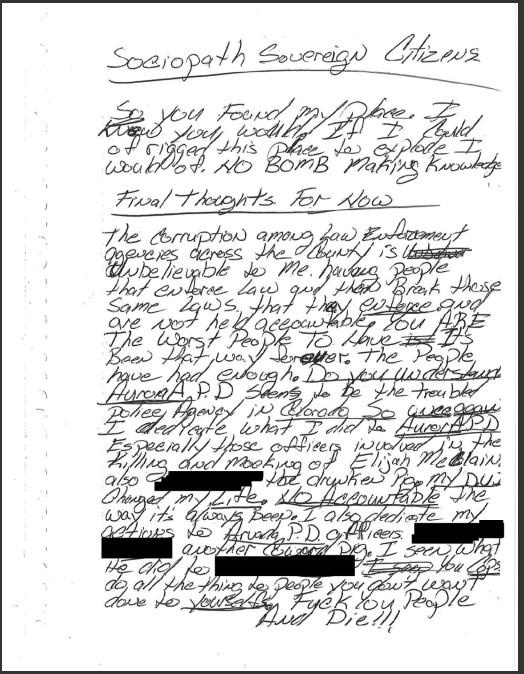 Sociopath Sovereign Citizens
So you Found my Place. I
Knew you would. If I Could
of rigged this Place to explode I
would of. NO BOMB Making Knowledge
Final Thoughts For Now
The Corruption among Law Enforcement
agencies across the County is
Unbelievable to Me. having People
that enforce Law and than Break those
Same Laws. that they enforce and
are not held accountable. You ARE
The Worst People To Have It's
Been that way forever. The People
have had enough. Do you understand
Aurora P.D Seems to be the troubled
Police Agency in Colorado So
I dedicate what I did to Aurora P.D
Especially those officers involved in the
Killing and mocking of Elijah McClain.
also the drunken Pop. My DUI
Changed my Life. NO Accountable the
way it's always Beep. I also dedicate my
actions to Aurora P.D officers
another Coward pig. I seen what
He did to You Cops
do all the thing to people you don't want
done to yourselfs Fuck you People
And Die!!!